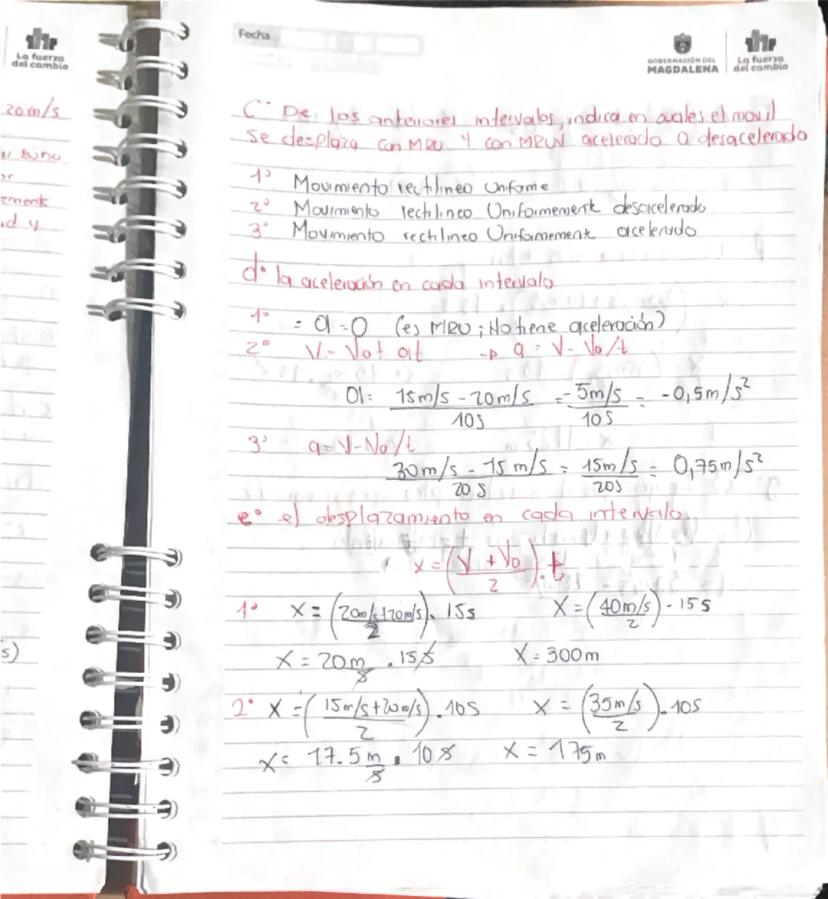 La fuerza
del cambio
20m/s
d y
s)
Fecha
GOBERNACIÓN DEL
MAGDALENA
La fuerza
del cambio
C° De los anteriores intervalos, indica en cuales el movil
se desplaza con MRU y con MRUV acelerado o desacelerado
1° Movimiento rectilineo Uniforme
2° Movimiento rectilineo Uniformement desacelerado
3° Movimiento rectilineo Uniformement acelerado
d° la aceleración en cada intervalo
1° = a=0 (es MRU; No tiene aceleración)
2° V= Vo+ at → a = V- Vo/t
a= (15m/s - 20m/s)/10s = -5m/s/10s = -0,5m/s²
3° a=V-Vo/t
(30m/s - 15m/s)/20s = 15m/s/20s = 0,75m/s²
e° el desplazamiento en cada intervalo
x=((V+Vo)/2).t
1° X=((20m/s+20m/s)/2). 15s X=(40m/s/2)-15s
X=20m/s .15s X=300m
2° X=((15m/s+20m/s)/2).10s X=(35m/s/2).10s
X= 17.5m/s . 10s X=175m